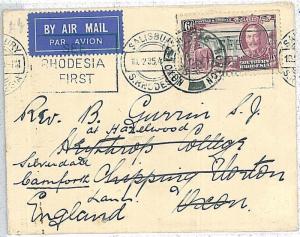 BY AIR MAIL
PAR AVION
RHODESIA
FIRST
SALISBURY
S. RHODESIA
SOUTHERN
RHODESIA
Rev. B. Gurrin S.J.
at Hazelwood
Heythrop College
Silverdale
Carnforth Chipping Norton
Lancs. Oxon.
England